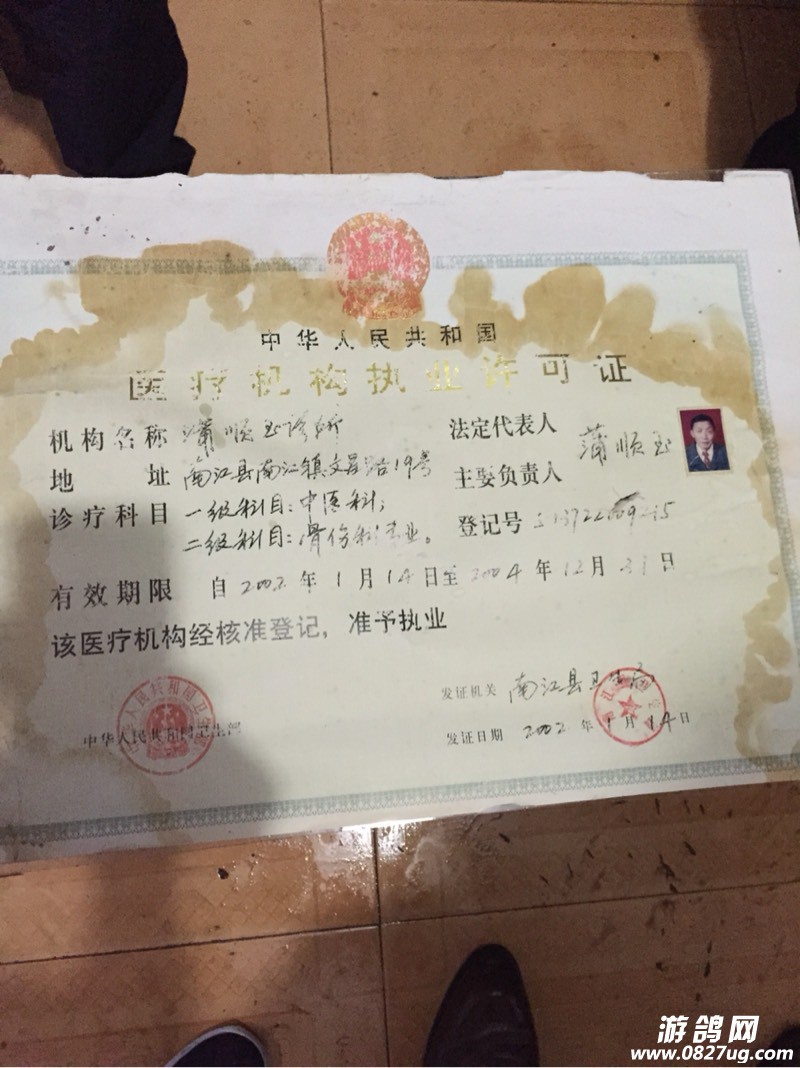 中华人民共和国
医疗机构执业许可证
机构名称 蒲顺玉诊所
地址 南江县南江镇文星路19号
诊疗科目 一级科目：中医科；
二级科目：骨伤科专业。
法定代表人
主要负责人
蒲顺玉
登记号
有效期限 自2002年1月14日至2004年12月31日
该医疗机构经核准登记，准予执业
中华人民共和国卫生部
发证机关 南江县卫生局
发证日期 2002年1月14日
游鸽网
www.0827ug.com